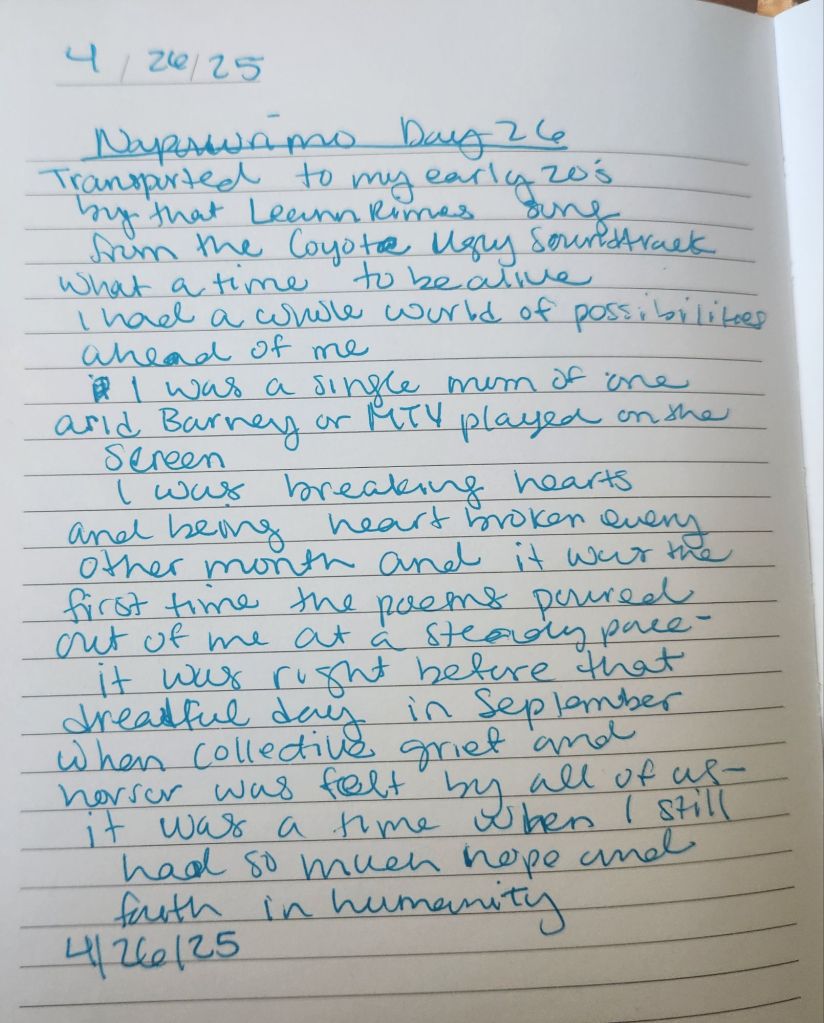 4/26/25
Napowrimo Day 26
Transported to my early 20's
by that Leann Rimes song
from the Coyote Ugly Soundtrack
What a time to be alive
I had a whole world of possibilities
ahead of me
I was a single mom of one
and Barney or MTV played on the
screen
I was breaking hearts
and being heart broken every
other month and it was the
first time the poems poured
out of me at a steady pace-
it was right before that
dreadful day in September
when collective grief and
horror was felt by all of us-
it was a time when I still
had so much hope and
faith in humanity
4/26/25